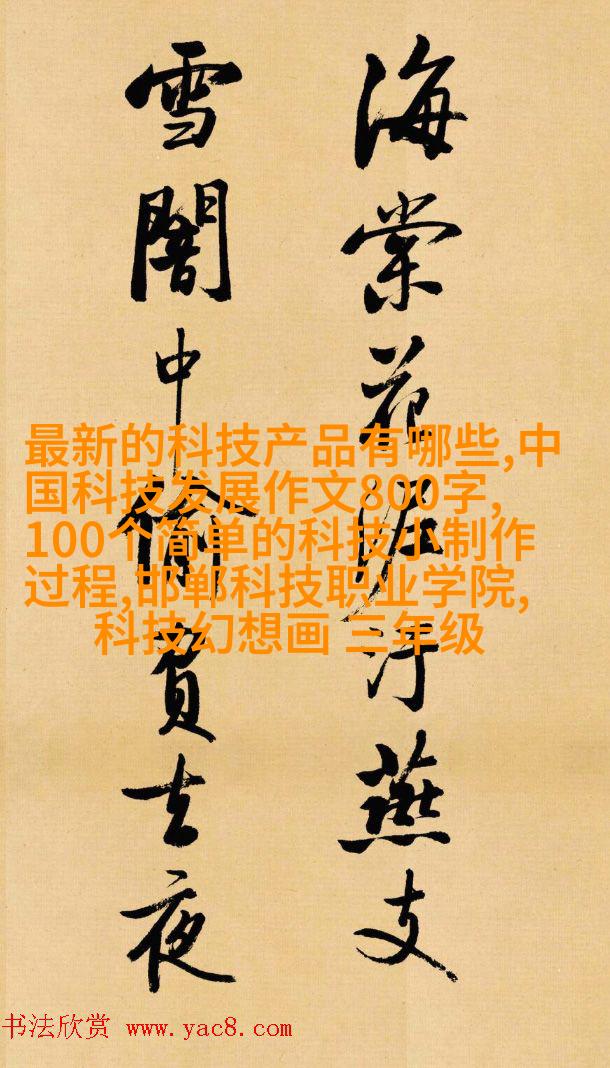 海棠花泥汙燕支
雪闇中偷負去夜
最新的科技产品有哪些,中
国科技发展作文800字,
100个简单的科技小制作
过程,邯郸科技职业学院,
科技幻想画 三年级
书法欣赏 www.yac8.com